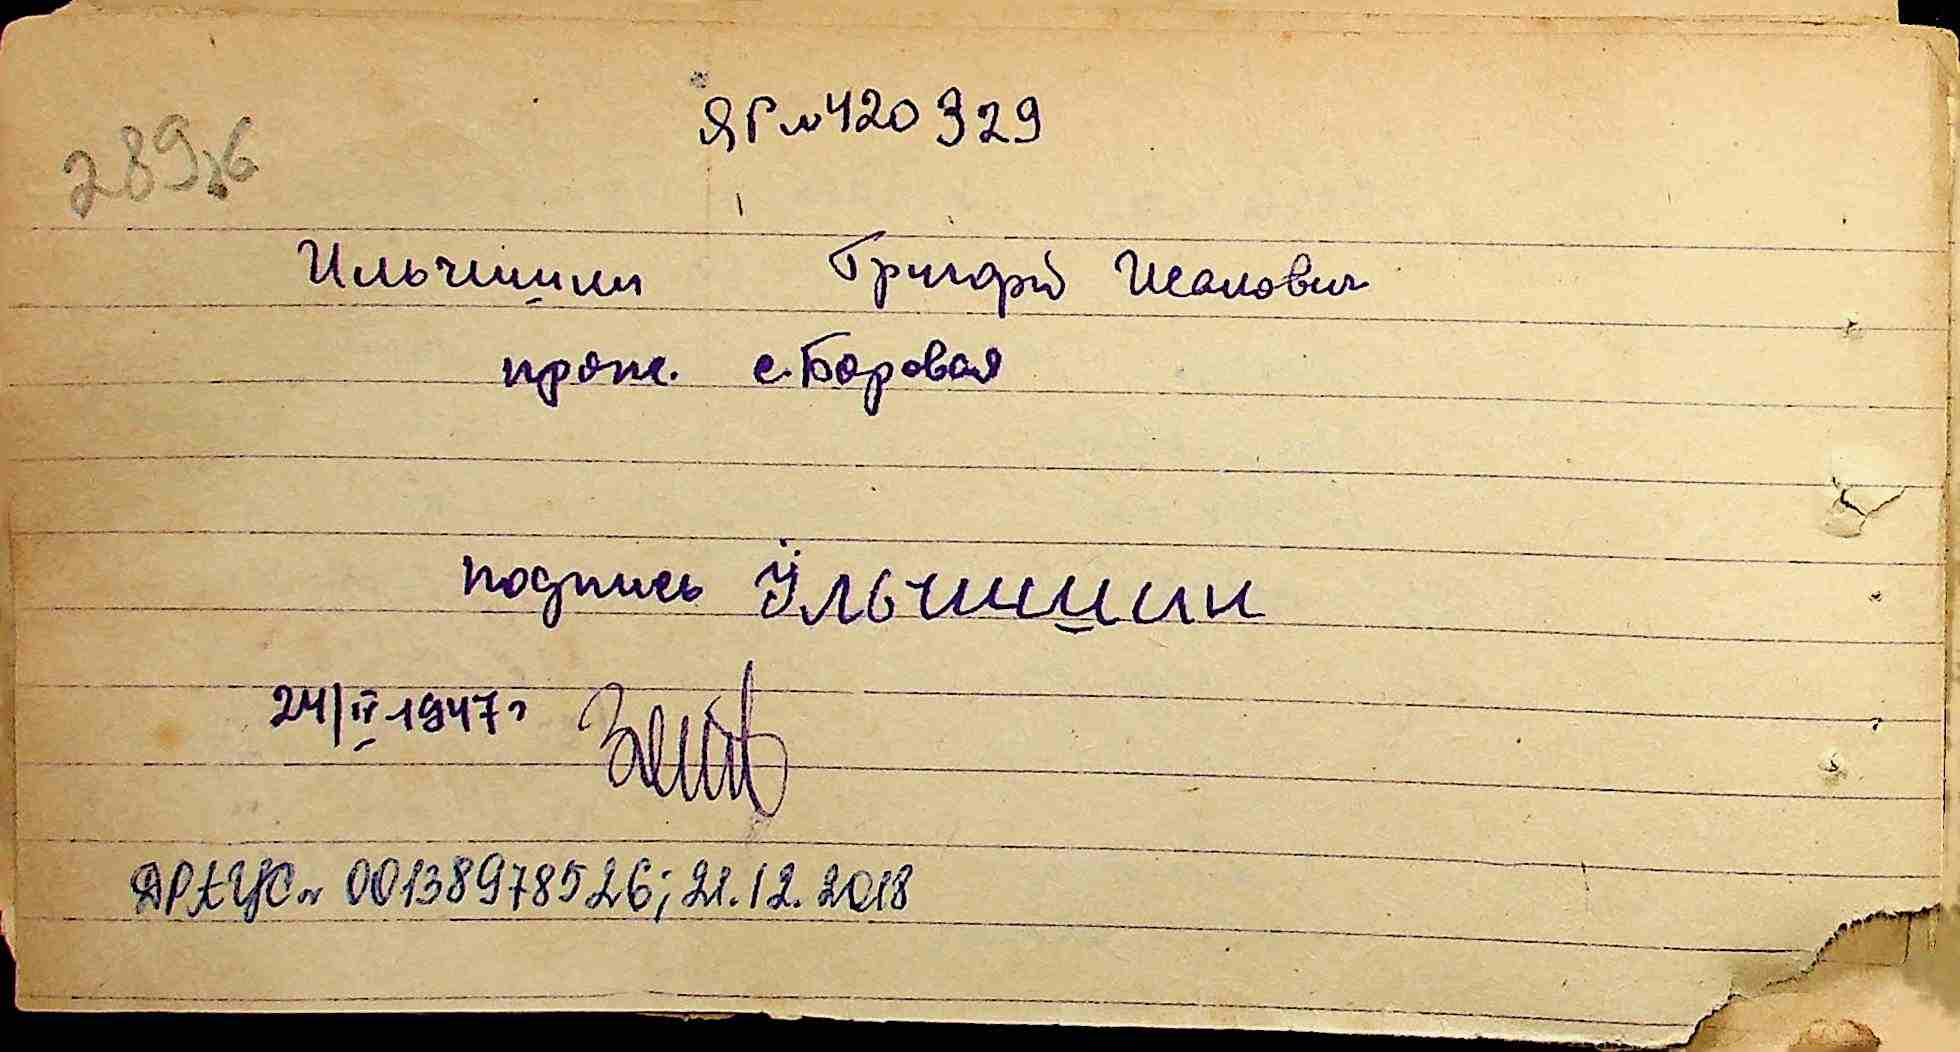 289
ЯР № 420329
Ильчишин Григорий Иванович
прож. с. Боровая
подпись Ильчишин
24/IV 1947 г
ДРАЦС № 00138978526; 21.12.2018